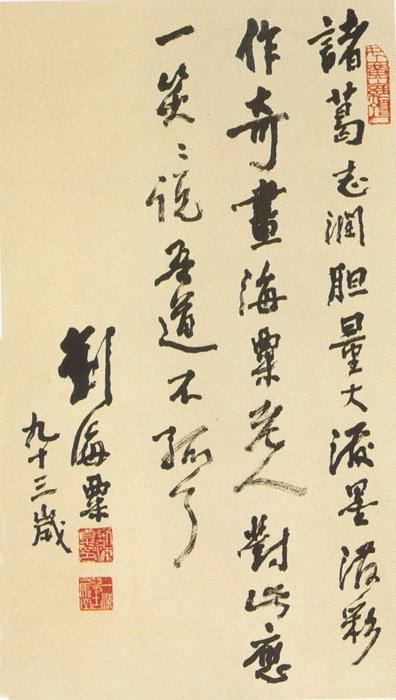 諸葛志潤胆量大泼墨泼彩
作奇畫海粟老人對此應
一笑〻说吾道不孤了
劉海粟
九十三歲